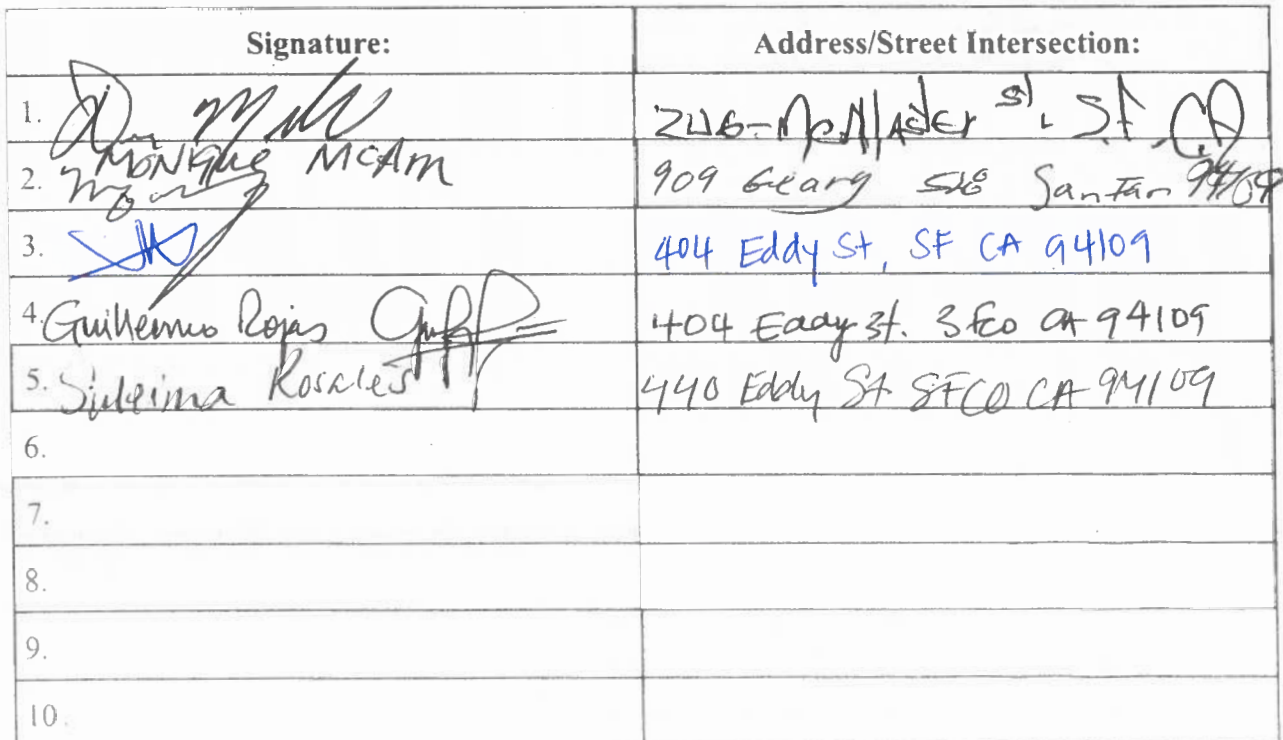 Signature: Address/Street Intersection:
1. St. S.F, CA
2. MONIQUE MCAM 909 Geary San Fran 94109
3. 404 Eddy St, SF CA 94109
4. Guillermo Rojas 404 Eddy St. SFco CA 94109
5. Suleima Rosales 440 Eddy St SFCO CA 94109
6.
7.
8.
9.
10.